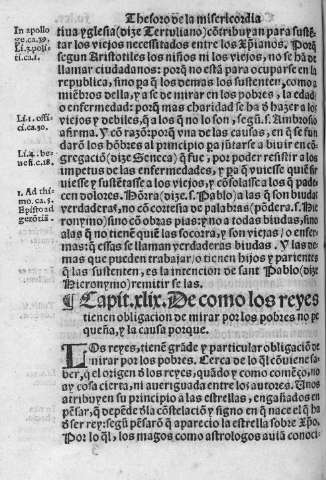 Thesoro de la misericordia
In apollo
ge.ca.39.
Li.3.polí
ti.ca.1.
tiua yglesia (dize Tertuliano) cõtribuyan para sustẽ
tar los viejos necessitados entre los Xp̃ianos. Porq̃
segun Aristotiles los niños ni los viejos, no se hã de
llamar ciudadanos: porq̃ no està para ocuparse en la
republica, sino pa q̃ los demas los sustenten, como a
miẽbros della, y a se de mirar en los pobres, la edad
o enfermedad: porq̃ mas charidad se ha d̃ hazer a los
Li.1. offi
ci.ca.30.
viejos y debiles, q̃ a los q̃ no lo son, segũ.s. Ambrosio
afirma. Y cõ razõ: porq̃ vna de las causas, en q̃ se fun
darõ los hõbres al principio pa jũtarse a biuir en cõ
Li.4. be-
nefi.c.18.
gregaciõ (dize Seneca) q̃ fue, por poder resistir a los
impetus de las enfermedades, y pa q̃ vuiesse quiẽ sir
uiesse y sustẽtasse a los viejos, y cõsolasse a los q̃ pade
1. Ad thi
mo.ca.5.
Episto ad
gerõtiã.
cen dolores. Hõrra (dize.s.Pablo) a las q̃ son biudas
verdaderas, no cõ cortesia de palabras (põdera.s.Hie
ronymo) sino cõ obras pias: y no a todas biudas, sino
a las q̃ no tienẽ quiẽ las socorra, y son viejas / o enfer
mas: q̃ a essas se llaman verdaderas biudas. Y las de
mas que pueden trabajar / o tienen hijos y parientes
q̃ las sustenten, es la intencion de sant Pablo (dize
Hieronymo) remitir se las.
¶ Capit.xlix. De como los reyes
tienen obligacion de mirar por los pobres no pe
queña, y la causa porque.
LOs reyes, tienẽ grãde y particular obligaciõ de
mirar por los pobres. Cerca de lo q̃l cõuiene sa
ber, q̃ el origen d̃ los reyes, quãdo y como comẽço, no
ay cosa cierta, ni aueriguada entre los autores. Unos
atribuyen su principio a las estrellas, engañados en
pẽsar, q̃ depẽde d̃ la cõstelaciõ y signo en q̃ nace el q̃ ha
d̃ ser rey: segũ pẽsarõ q̃ aparecio la estrella sobre Xp̃o.
Por lo q̃l, los magos como astrologos auiã conoci-